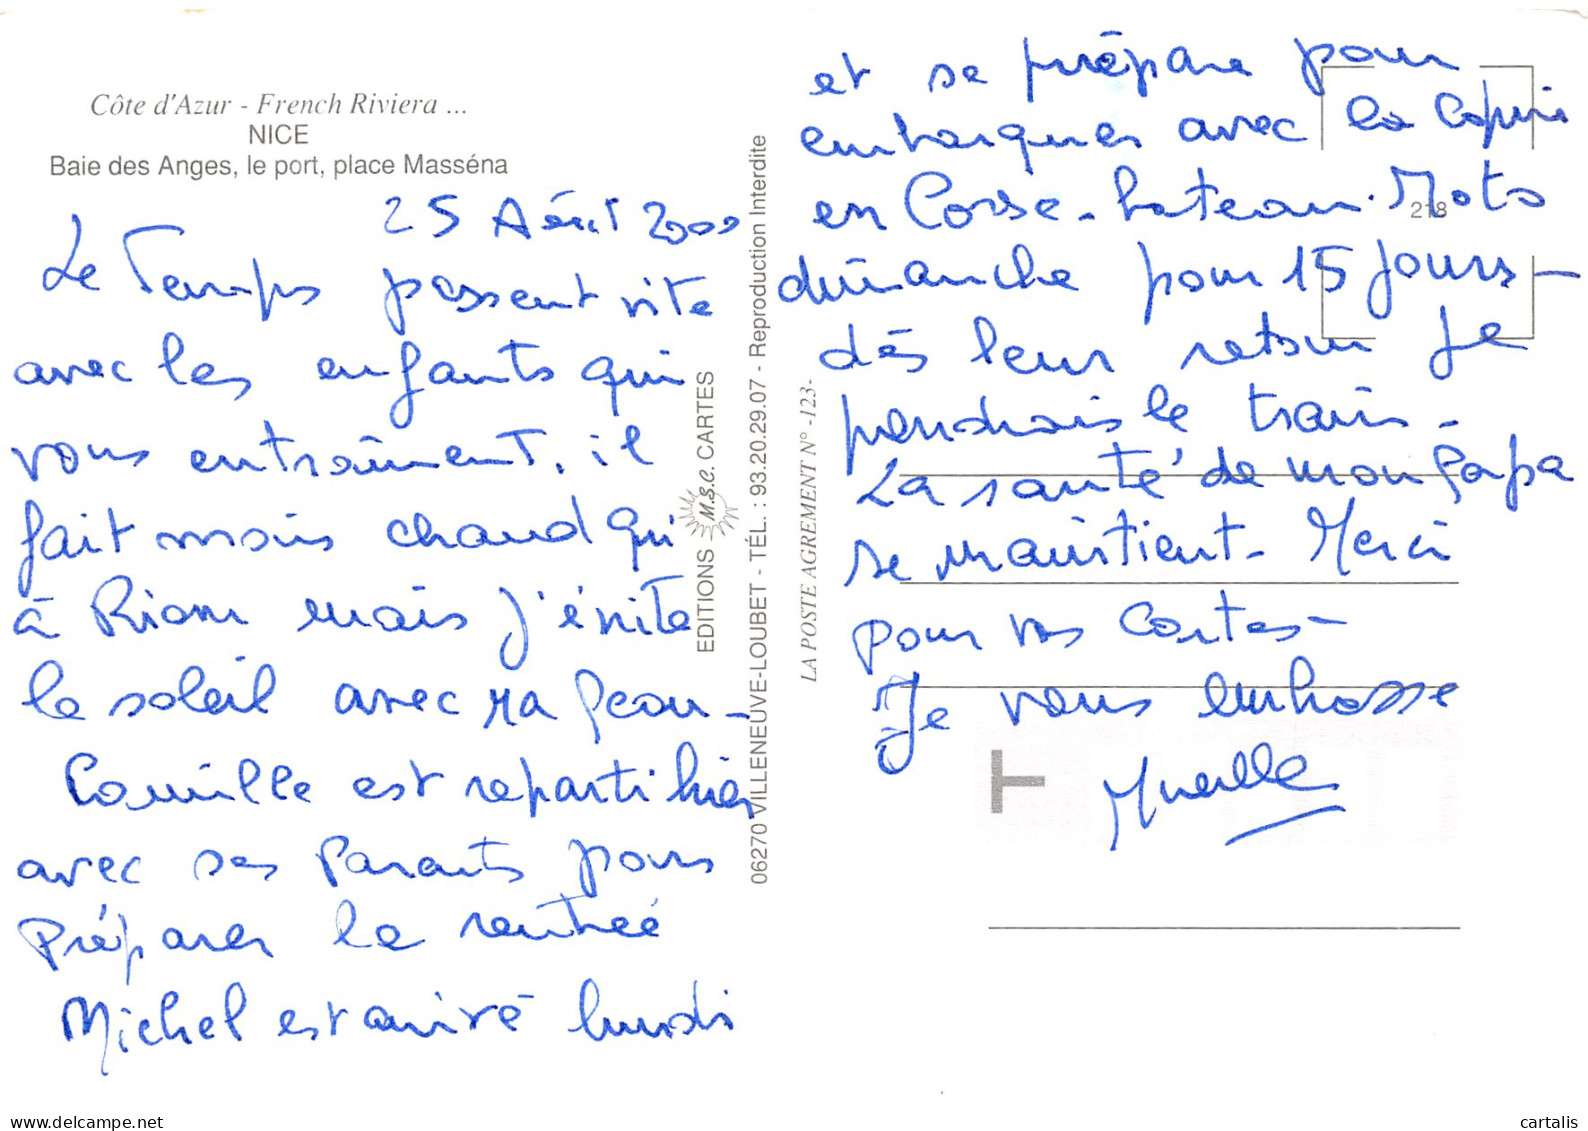 Côte d'Azur - French Riviera ...
NICE
Baie des Anges, le port, place Masséna
25 Août 2000
Le Temps passent vite
avec les enfants qui
vous entraînent. il
fait moins chaud qu'
à Riom mais j'évite
le soleil avec ma peau -
Camille est reparti hier
avec ses Parents pour
Préparer la rentrée
Michel est arrivé lundi
EDITIONS M.S.C. CARTES
06270 VILLENEUVE-LOUBET - TÉL. : 93.20.29.07 - Reproduction Interdite
LA POSTE AGREMENT N° -123-
218
et se prépare pour
embarquer avec la
en Corse - bateau. Moto
dimanche pour 15 jours -
dès leur retour Je
prendrais le train -
La santé de mon papa
se maintient - Merci
pour vos cartes -
Je vous embrasse
T